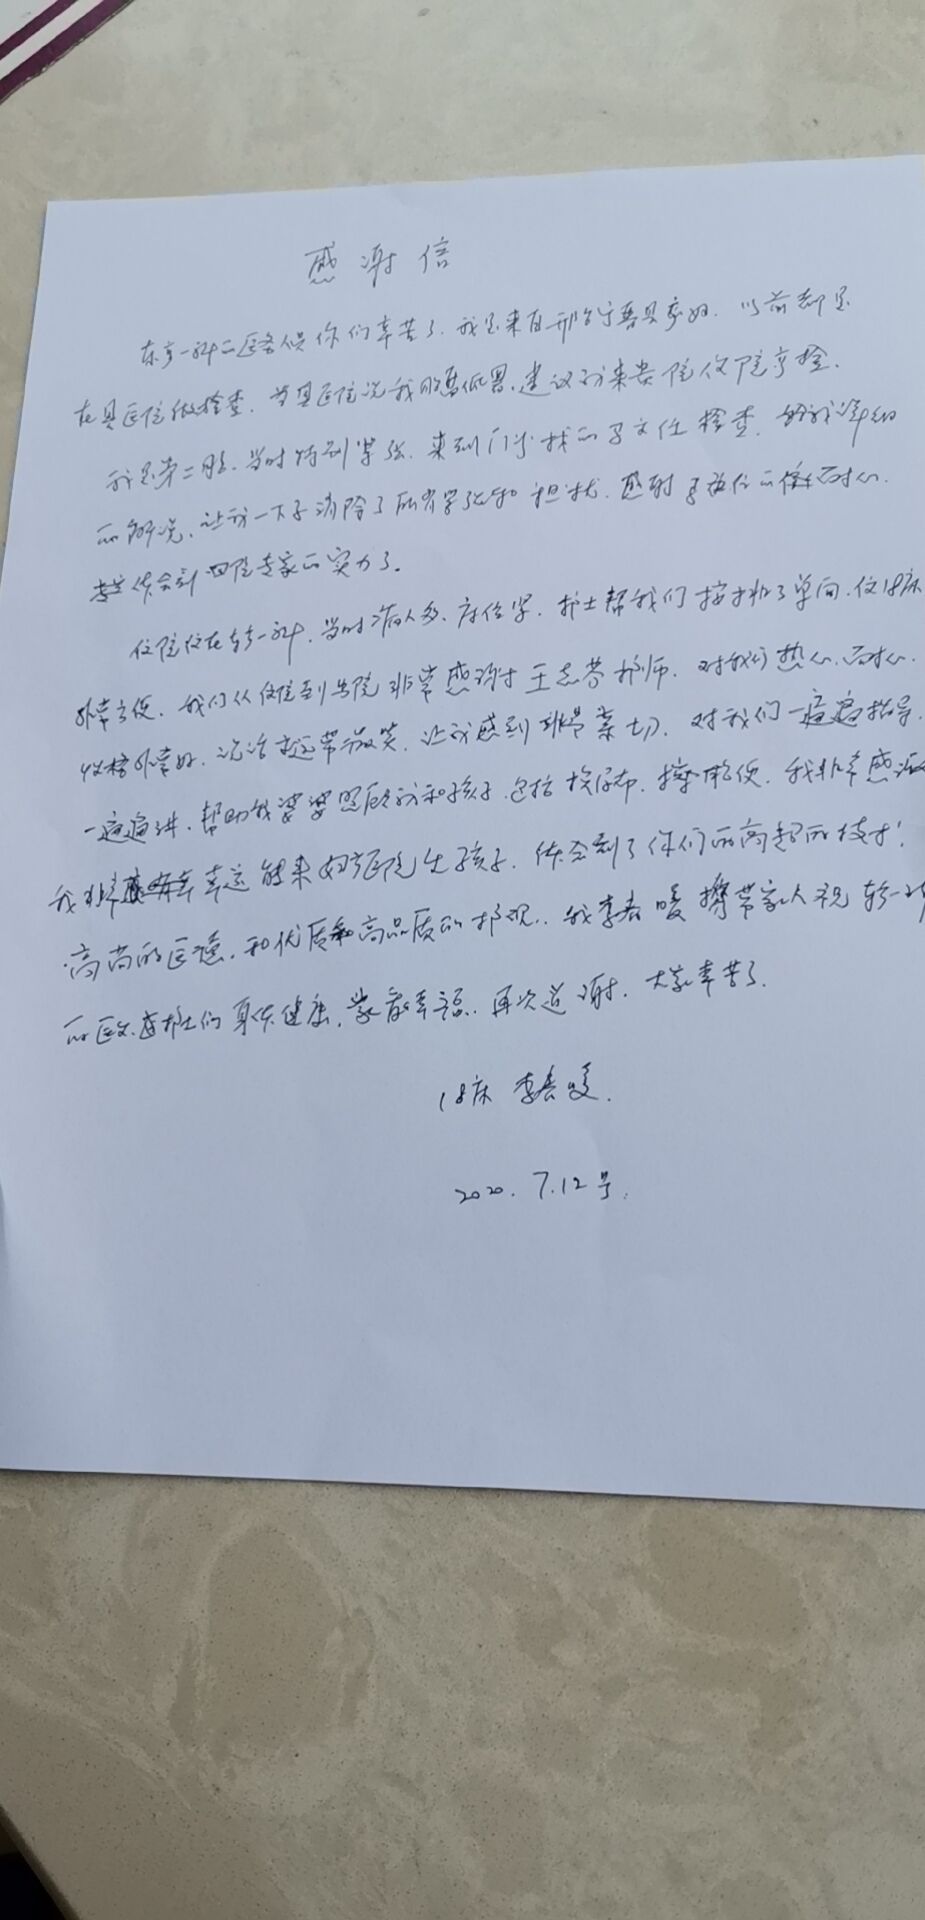 感谢信
东产一科的医务人员你们辛苦了.我是来自邢台宁晋县孕妇.以前都是
在县医院做检查.当县医院说我胎盘低置.建议我来贵院住院产检.
我是第二胎.当时特别紧张.来到门诊找的 主任检查.给我详细
的解说,让我一下子消除了所有紧张和担忧.感谢 主任的 耐心.
体会到四院专家的实力了.
住院住在东产一科.当时病人多.床位紧.护士帮我们安排了单间.住18床
非常方便.我们从住院到出院非常感谢王志芬护师.对我们热心.耐心.
性格非常好.说话 带微笑.让我感到非常亲切.对我们一遍遍指导.
一遍遍讲.帮助我婆婆照顾我和孩子.包括换尿布.擦 便.我非常感激
我非常 幸运能来妇产医院生孩子.体会到了你们的高超的技术!
高尚的医德.和优质和高品质的护理..我李春暖携带家人祝东产一科
的医生.护士们身体健康. 幸福.再次道谢.大家辛苦了.
18床 李春暖.
2020.7.12号.